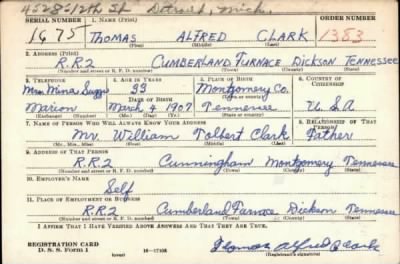 4528-12th St Detroit, Mich.
SERIAL NUMBER 1. NAME (Print) ORDER NUMBER
1675 THOMAS ALFRED CLARK 1383
(First) (Middle) (Last)
2. ADDRESS (Print)
R.R.2 CUMBERLAND FURNACE DICKSON TENNESSEE
(Number and street or R. F. D. number) (Town) (County) (State)
3. TELEPHONE 4. AGE IN YEARS 5. PLACE OF BIRTH 6. COUNTRY OF CITIZENSHIP
Mrs Mina 33 Montgomery Co.
DATE OF BIRTH (Town or county)
Marion March 4 1907 Tennessee U.S.A
(Exchange) (Number) (Mo.) (Day) (Yr.) (State or country)
7. NAME OF PERSON WHO WILL ALWAYS KNOW YOUR ADDRESS 8. RELATIONSHIP OF THAT PERSON
Mr. William Tolbert Clark Father
(Mr., Mrs., Miss) (First) (Middle) (Last)
9. ADDRESS OF THAT PERSON
R.R.2 Cunningham Montgomery Tennessee
(Number and street or R. F. D. number) (Town) (County) (State)
10. EMPLOYER'S NAME
Self
11. PLACE OF EMPLOYMENT OR BUSINESS
R.R.2 Cumberland Furnace Dickson Tennessee
(Number and street or R. F. D. number) (Town) (County) (State)
I AFFIRM THAT I HAVE VERIFIED ABOVE ANSWERS AND THAT THEY ARE TRUE.
REGISTRATION CARD
D. S. S. Form 1 16—17105 Thomas Alfred Clark
(Registrant's signature)